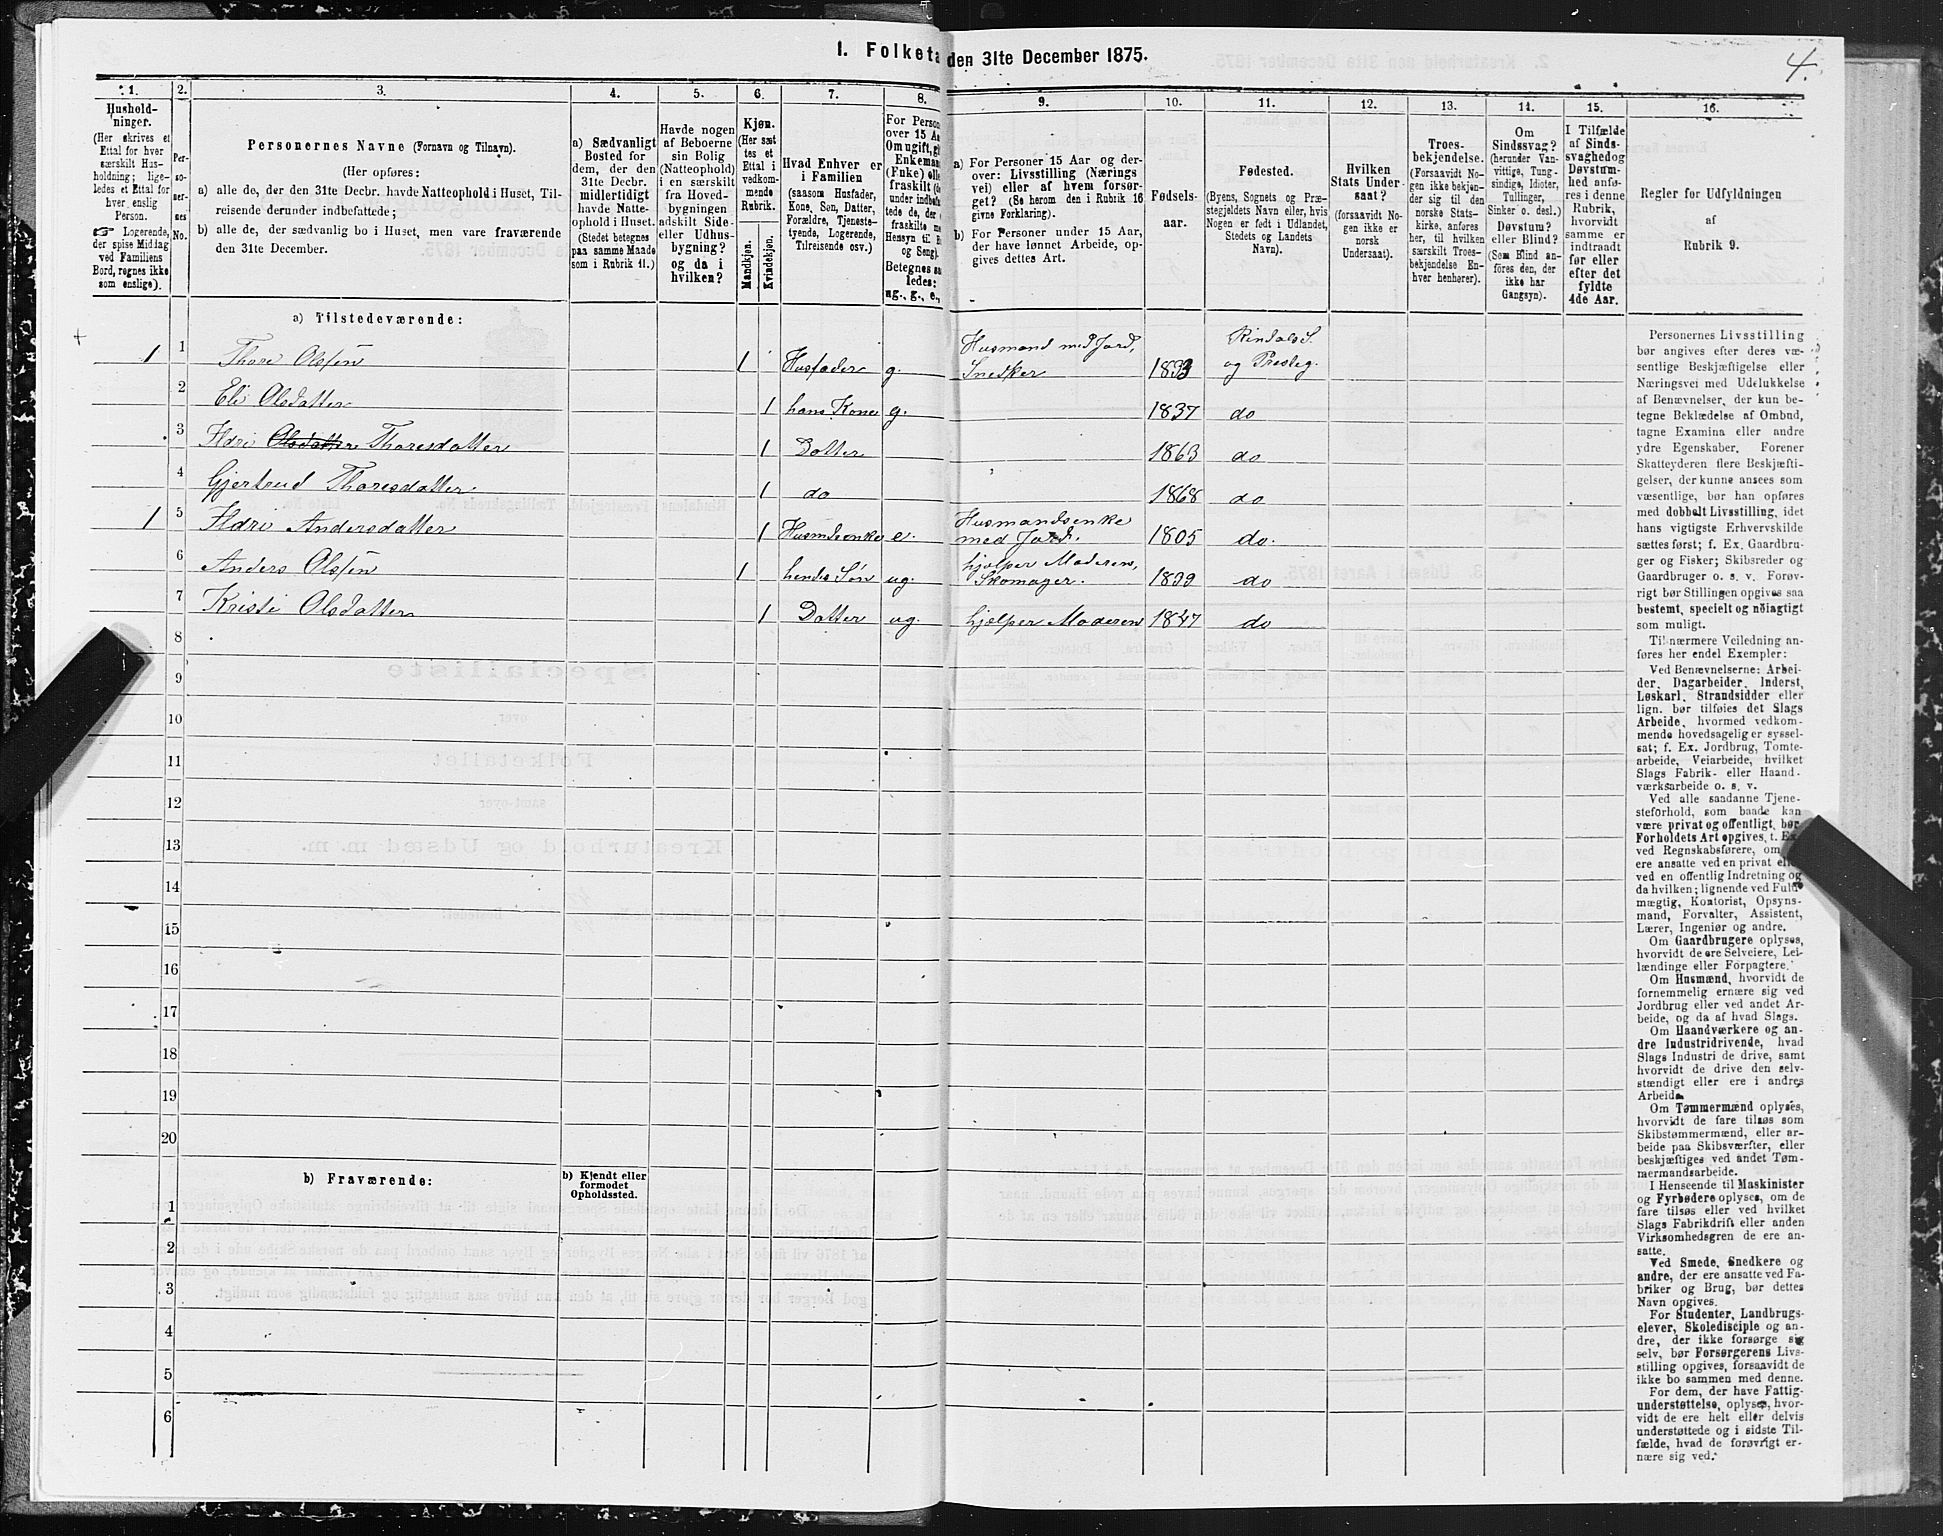 1. Folketa den 31te December 1875.
4.
1. 2. 3. 4. 5. 6. 7. 8. 9. 10. 11. 12. 13. 14. 15. 16.
Hushold-
ninger.
(Her skrives et
Ettal for hver
særskilt Hus-
holdning; lige-
ledes et Ettal for
hver enslig
Person.
☞ Logerende,
der spise Middag
ved Familiens
Bord, regnes ikke
som enslige).
Per-
so-
ner-
nes
No.
Personernes Navne (Fornavn og Tilnavn).
(Her opføres:
a) alle de, der den 31te Decbr. havde Natteophold i Huset, Til-
reisende derunder indbefattede;
b) alle de, der sædvanlig bo i Huset, men vare fraværende
den 31te December.
a) Sædvanligt
Bosted for
dem, der den
31te Decbr.
midlertidigt
havde Natte-
ophold i Huset.
(Stedet betegnes
paa samme Maade
som i Rubrik 11.)
Havde nogen
af Beboerne
sin Bolig
(Natteophold)
i en særskilt
fra Hoved-
bygningen
adskilt Side-
eller Udhus-
bygning?
og da i
hvilken?
Kjøn.
(Her sæt
tes et
Ettal i
vedkom-
mende
Rubrik.
Mandkjøn.
Kvindekjøn.
Hvad Enhver er
i Familien
(saasom Husfader,
Kone, Søn, Datter,
Forældre, Tjeneste-
tyende, Logerende,
Tilreisende osv.)
For Person
over 15 Aa
Om ugift, gi
Enkeman
(Fuke) elle
fraskilt (d
under indbefa
tede de, der
fraskilte m
Hensyn til B
og Seng).
Betegnes sa
ledes:
ug., g., e.,
a) For Personer 15 Aar og der-
over: Livsstilling (Nærings
vei) eller af hvem forsør-
get? (Se herom den i Rubrik 16
givne Forklaring).
b) For Personer under 15 Aar,
der have lønnet Arbeide, op-
gives dettes Art.
Fødsels-
aar.
Fødested.
(Byens, Sognets og Præ-
stegjeldets Navn eller, hvis
Nogen er født i Udlandet,
Stedets og Landets
Navn).
Hvilken
Stats Under-
saat?
(forsaavidt No-
gen ikke er
norsk
Undersaat).
Troes-
bekjendelse.
(Forsaavidt No-
gen ikke bekjen-
der sig til den
norske Stats-
kirke, anføres
her, til hvilken
særskilt Troes-
bekjendelse En-
hver henhører).
Om
Sindssvag?
(herunder Van-
vittige, Tung-
sindige, Idioter,
Tullinger,
Sinker o. desl.)
Døvstum?
eller Blind?
(Som Blind an-
føres den, der
ikke har
Gangsyn).
I Tilfælde
af Sinds-
svaghed og
Døvstum-
hed anfø-
res i denne
Rubrik,
hvorvidt
samme er
indtraadt
før eller
efter det
fyldte
4de Aar.
Regler for Udfyldningen
af
Rubrik 9.
a) Tilstedeværende:
1 1 Thore Olsen 1 Husfader g. Husmand med Jord, Snedker 1833 Rindals S. og Præsteg.
2 Eli Olsdatter 1 hans Kone g. 1837 do
3 Ildri Olsdatter Thoresdatter 1 Datter 1863 do
4 Gjertrud Thoresdatter 1 do 1868 do
1 5 Ildri Andersdatter 1 Husmdsenke e. Husmandsenke med Jord. 1805 do.
6 Anders Olsen 1 hendes Søn ug. hjælper Moderen, Skomager. 1839 do
7 Kristi Olsdatter 1 Datter ug. hjælper Moderen 1847 do
8
9
10
11
12
13
14
15
16
17
18
19
20
b) Fraværende:
b) Kjendt eller
formodet
Opholdssted.
1
2
3
4
5
6
Personernes Livsstilling
bør angives efter deres væ-
sentlige Beskjæftigelse eller
Næringsvei med Udelukkelse
af Benævnelser, der kun be-
tegne Beklædelse af Ombud,
tagne Examina eller andre
ydre Egenskaber. Forener
Skatteyderen flere Beskjæfti-
gelser, der kunne ansees som
væsentlige, bør han opføres
med dobbelt Livsstilling, idet
hans vigtigste Erhvervskilde
sættes først; f. Ex. Gaardbru-
ger og Fisker; Skibsreder og
Gaardbruger o. s. v. Forøv-
rigt bør Stillingen opgives saa
bestemt, specielt og nøiagtigt
som muligt.
Til nærmere Veiledning an-
føres her endel Exempler:
Ved Benævnelserne: Arbei-
der, Dagarbeider, Inderst,
Løskarl, Strandsidder eller
lign. bør tilføies det Slags
Arbeide, hvormed vedkom-
mende hovedsagelig er syssel-
sat; f. Ex. Jordbrug, Tomte-
arbeide, Veiarbeide, hvilket
Slags Fabrik- eller Haand-
værksarbeide o. s. v.
Ved alle saadanne Tjene-
steforhold, som baade kan
være privat og offentligt, bør
Forholdets Art opgives, t. Ex.
ved Regnskabsførere, om
ere ansatte ved en privat eller
ved en offentlig Indretning og
da hvilken; lignende ved Fuld-
mægtig, Kontorist, Opsyns-
mand, Forvalter, Assistent,
Lærer, Ingeniør og andre.
Om Gaardbrugere oplyses,
hvorvidt de ere Selveiere, Lei-
lændinge eller Forpagtere.
Om Husmænd, hvorvidt de
fornemmelig ernære sig ved
Jordbrug eller ved andet Ar-
beide, og da af hvad Slags.
Om Haandværkere og an-
dre Industridrivende, hvad
Slags Industri de drive, samt
hvorvidt de drive den selv-
stændigt eller ere i andres
Arbeide.
Om Tømmermænd oplyses,
hvorvidt de fare tilsøs som
Skibstømmermænd, eller ar-
beide paa Skibsværfter, eller
beskjæftiges ved andet Tøm-
mermandsarbeide.
I Henseende til Maskinister
og Fyrbødere oplyses, om de
fare tilsøs eller ved hvilket
Slags Fabrikdrift eller anden
Virksomhedsgren de ere an-
satte.
Ved Smede, Snedkere og
andre, der ere ansatte ved Fa-
briker og Brug, bør dettes
Navn opgives.
For Studenter, Landbrugs-
elever, Skoledisciple og an-
dre, der ikke forsørge sig
selv, bør Forsørgerens Livs-
stilling opgives, forsaavidt de
ikke bo sammen med denne.
For dem, der have Fattig-
understøttelse, oplyses, hvor-
vidt de ere helt eller delvis
understøttede og i sidste Til-
fælde, hvad de forøvrigt er-
nære sig ved.